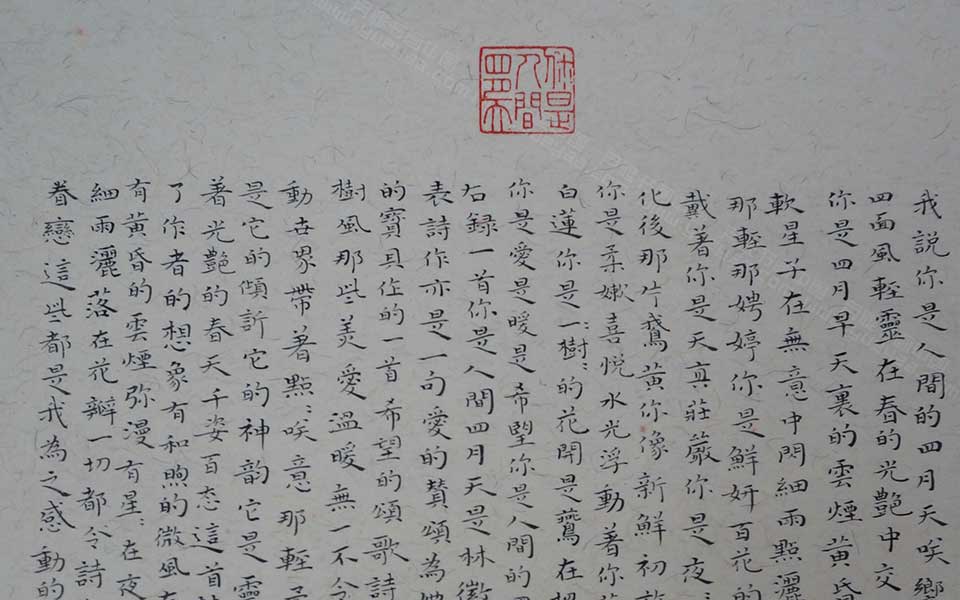 你是
人間
四月天
我說你是人間的四月天笑響
四面風輕靈在春的光艷中交
你是四月早天裏的雲煙黃昏
軟星子在無意中閃細雨點灑
那輕那娉婷你是鮮妍百花的
戴著你是天真莊嚴你是夜
化後那片鵝黃你像新鮮初放
你是柔嫩喜悅水光浮動著你
白蓮你是一樹樹的花開是鶯在
你是愛是暖是希望你是人間四
右録一首你是人間四月天是林徽
表詩作亦是一句愛的贊頌為她
的寶貝作的一首希望的頌歌詩
樹風那些美愛溫暖無一不令
動世界帶著點點笑意那輕
是它的傾訢它的神韵它是靈
著光艷的春天千姿百态這首
了作者的想象有和煦的微風
有黃昏的雲煙弥漫有星星在夜
細雨灑落在花瓣一切都令詩
眷戀這些都是我為之感動的